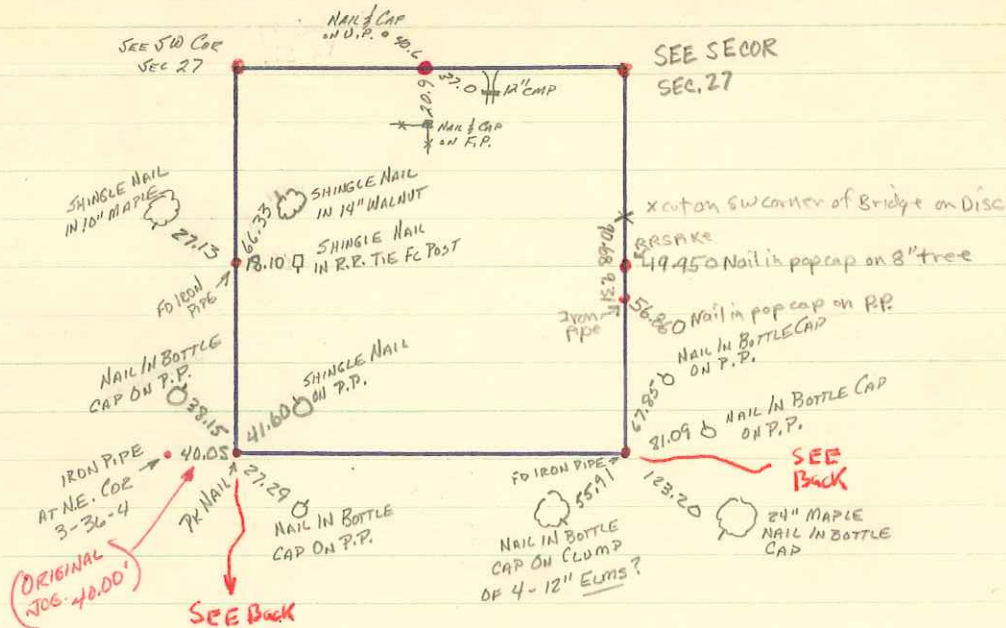 NAIL & CAP
ON U.P.
40.6
SEE SW COR
SEC 27
SEE SE COR
SEC. 27
37.0
12" CMP
20.9
NAIL & CAP
ON F.P.
SHINGLE NAIL
IN 10" MAPLE
27.13
66.33
SHINGLE NAIL
IN 14" WALNUT
18.10
SHINGLE NAIL
IN R.R. TIE FC POST
FD IRON
PIPE
X cut on SW corner of Bridge on Disc
90.68
49.95
Nail in pop cap on 8" tree
9.31
Iron
Pipe
56.86
Nail in pop cap on P.P.
NAIL IN BOTTLE CAP
ON P.P.
67.85
NAIL IN BOTTLE
CAP ON P.P.
38.15
SHINGLE NAIL
ON P.P.
41.60
81.09
NAIL IN BOTTLE CAP
ON P.P.
IRON PIPE
AT N.E. COR
3-36-4
40.05
PK NAIL
27.29
NAIL IN BOTTLE
CAP ON P.P.
FD IRON PIPE
55.91
NAIL IN BOTTLE
CAP ON CLUMP
OF 4-12" ELMS?
123.20
24" MAPLE
NAIL IN BOTTLE
CAP
SEE
Back
(ORIGINAL
40.00')
SEE Back